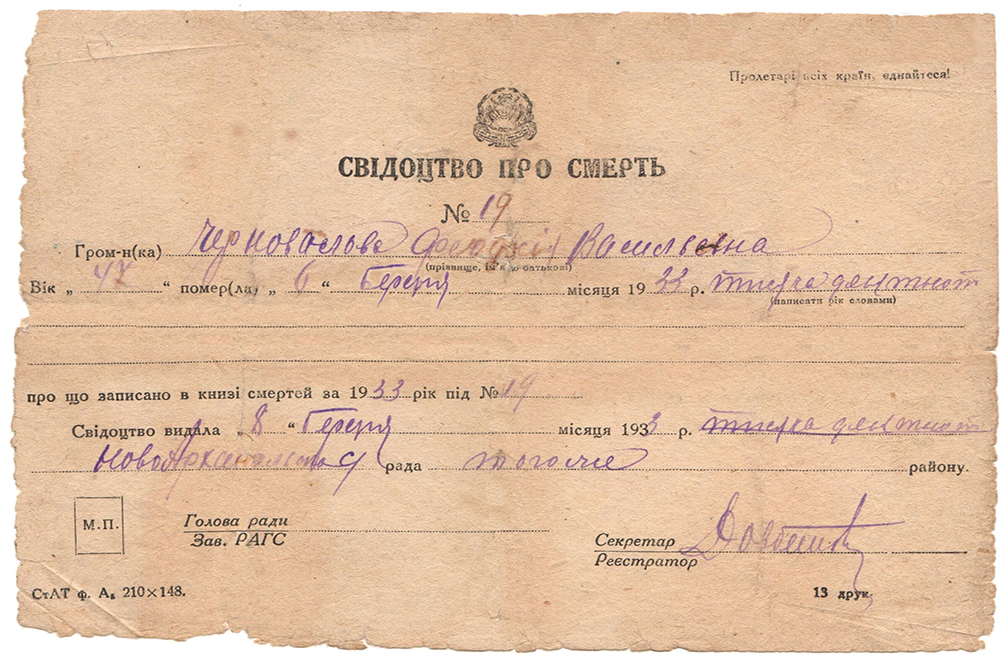 Пролетарі всіх країн, єднайтеся!
СВІДОЦТВО ПРО СМЕРТЬ
№ 19
Гром-н(ка) Черновасльва Васильевна
(прізвище, ім'я по батькові)
Вік „ 47 “ помер(ла) „ 6 “ Березня місяця 1933 р. тисяча
(написати рік словами)
про що записано в книзі смертей за 1933 рік під № 19
Свідоцтво видала „ 8 “ Березня місяця 1933 р. тисяча
рада того-же району.
М.П.
Голова ради
Зав. РАГС
Секретар
Реєстратор
СтАТ ф. А₅ 210×148.
13 друк.